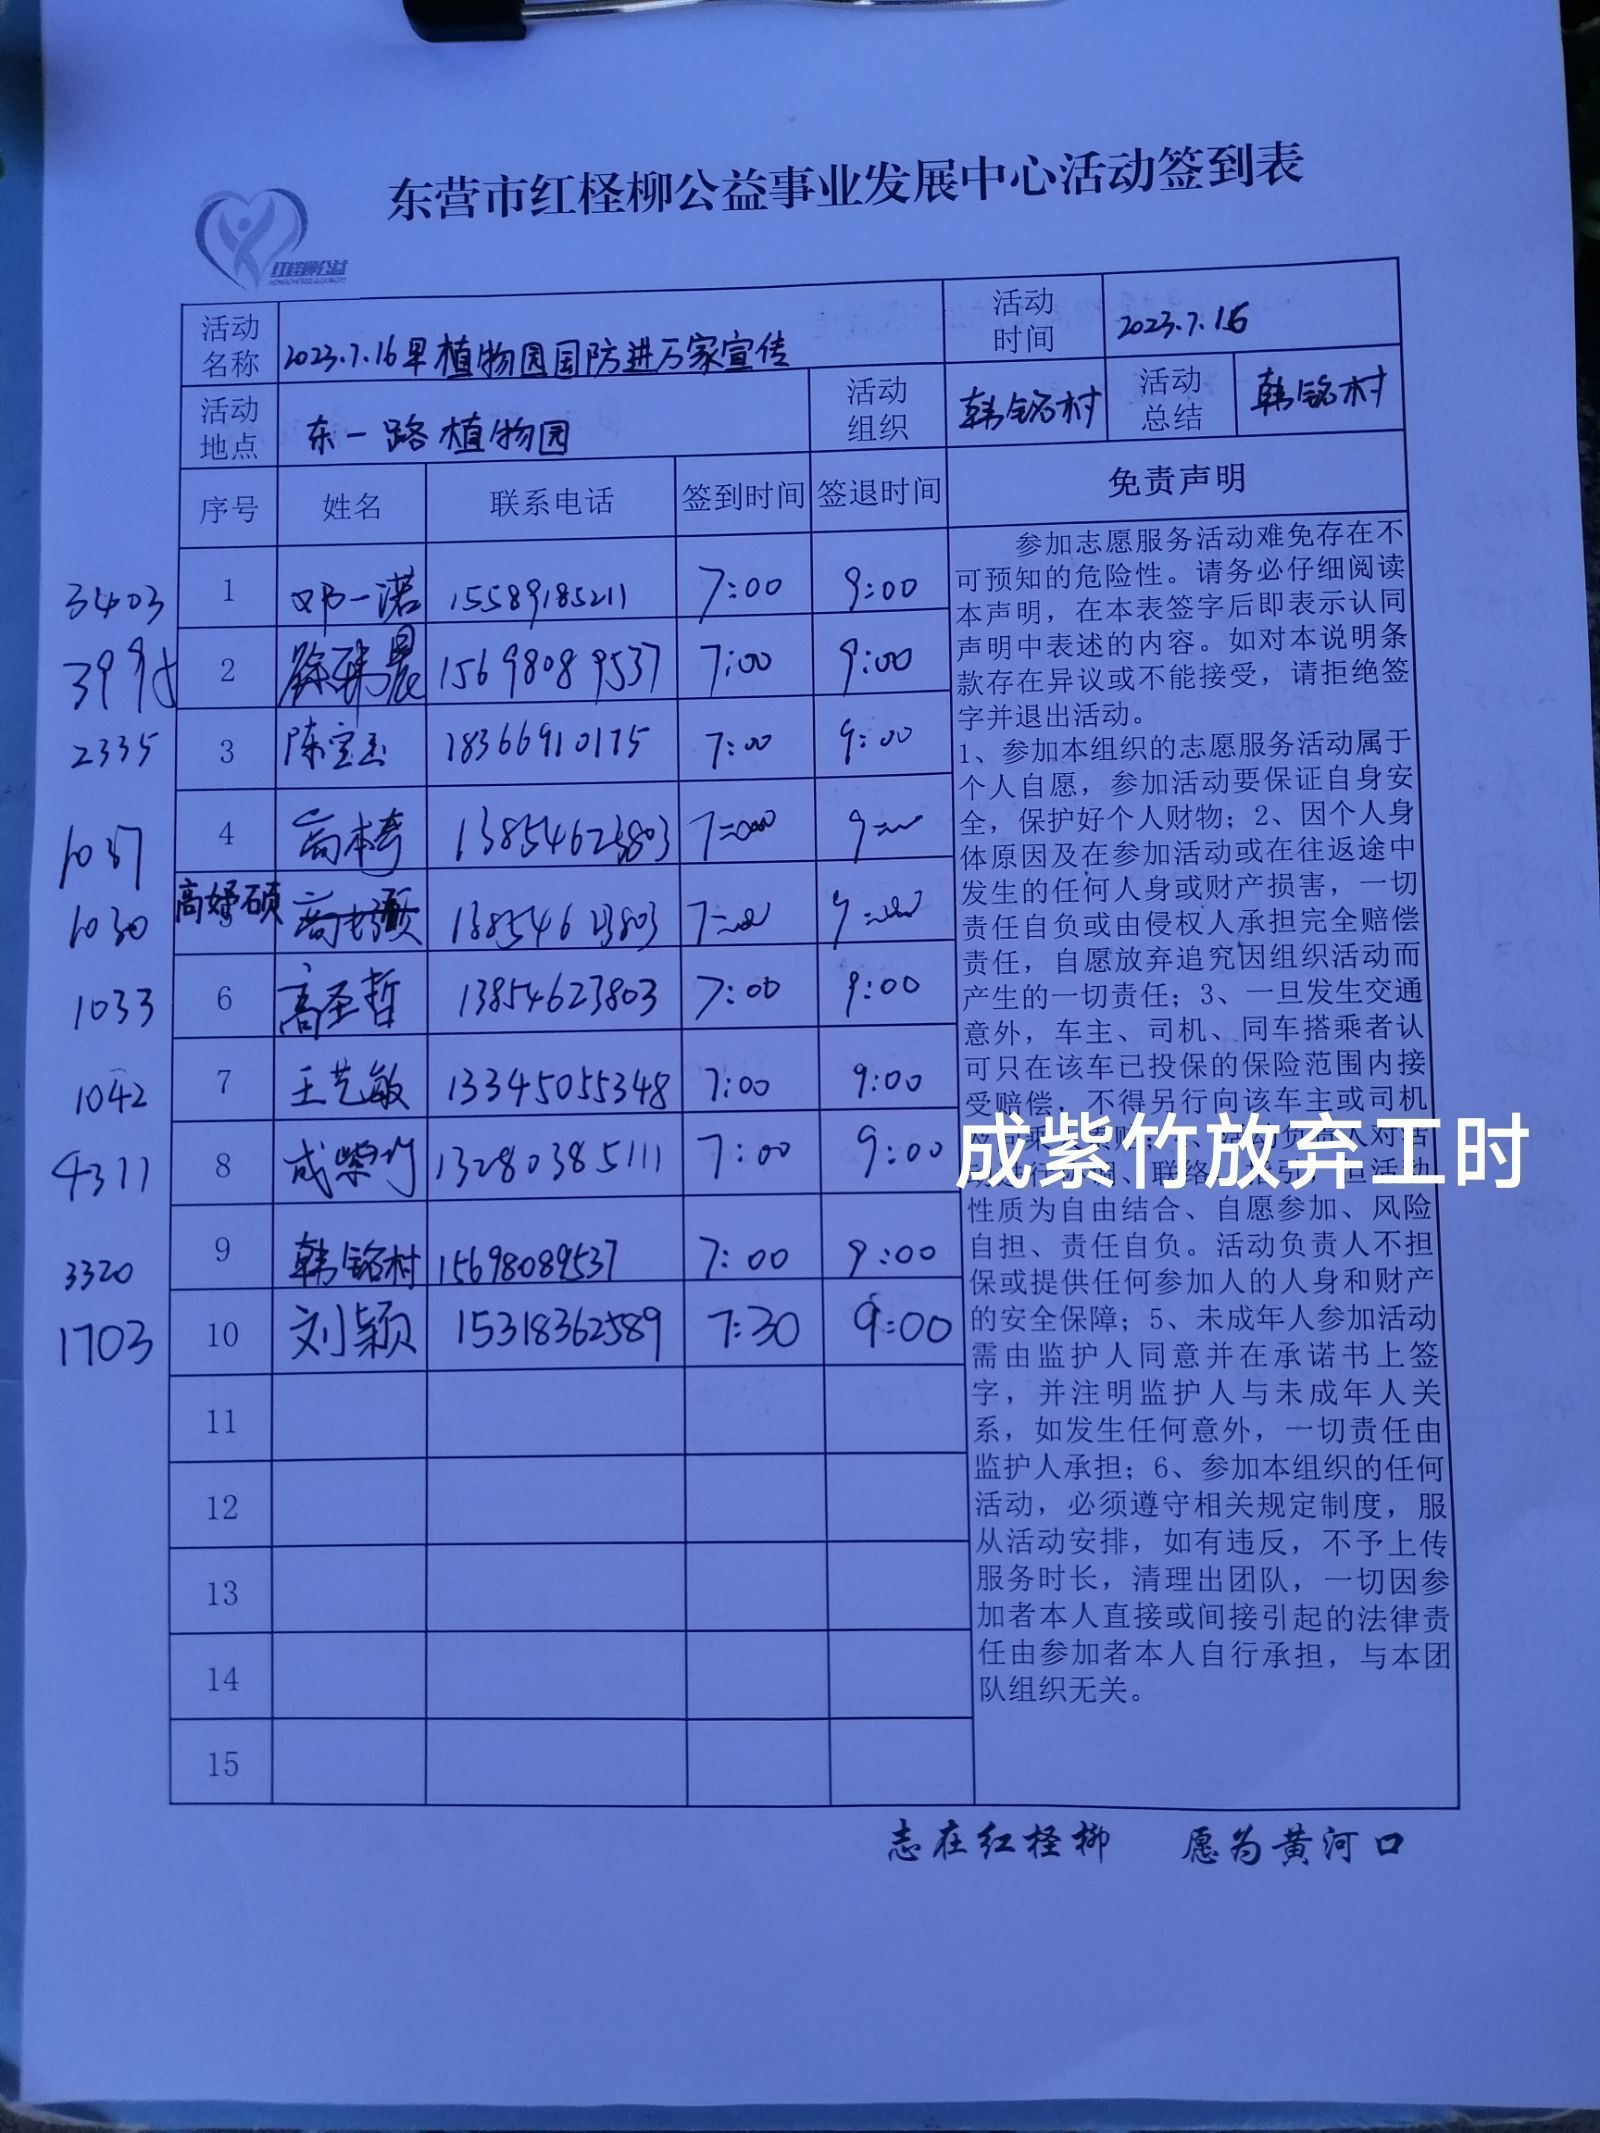 东营市红柽柳公益事业发展中心活动签到表
红柽柳公益
HONGCHENGLIUGONGYI
活动名称 2023.7.16早植物园国防进万家宣传 活动时间 2023.7.16
活动地点 东一路植物园 活动组织 韩铭村 活动总结 韩铭村
序号 姓名 联系电话 签到时间 签退时间 免责声明
3403 1 邓一诺 15589185211 7:00 9:00
2 15698089537 7:00 9:00
2335 3 陈宝玉 18366910175 7:00 9:00
1037 4 13854623803
1030 高妤硕 5 13854623803
1033 6 高圣哲 13854623803 7:00 9:00
1042 7 王艺敏 13345055348 7:00 9:00
4311 8 成紫竹 13280385111 7:00 9:00
3320 9 韩铭村 15698089537 7:00 9:00
1703 10 刘颖 15318362589 7:30 9:00
11
12
13
14
15
参加志愿服务活动难免存在不
可预知的危险性。请务必仔细阅读
本声明，在本表签字后即表示认同
声明中表述的内容。如对本说明条
款存在异议或不能接受，请拒绝签
字并退出活动。
1、参加本组织的志愿服务活动属于
个人自愿，参加活动要保证自身安
全，保护好个人财物；2、因个人身
体原因及在参加活动或在往返途中
发生的任何人身或财产损害，一切
责任自负或由侵权人承担完全赔偿
责任，自愿放弃追究因组织活动而
产生的一切责任；3、一旦发生交通
意外，车主、司机、同车搭乘者认
可只在该车已投保的保险范围内接
受赔偿，不得另行向该车主或司机
成紫竹放弃工时
性质为自由结合、自愿参加、风险
自担、责任自负。活动负责人不担
保或提供任何参加人的人身和财产
的安全保障；5、未成年人参加活动
需由监护人同意并在承诺书上签
字，并注明监护人与未成年人关
系，如发生任何意外，一切责任由
监护人承担；6、参加本组织的任何
活动，必须遵守相关规定制度，服
从活动安排，如有违反，不予上传
服务时长，清理出团队，一切因参
加者本人直接或间接引起的法律责
任由参加者本人自行承担，与本团
队组织无关。
志在红柽柳 愿为黄河口